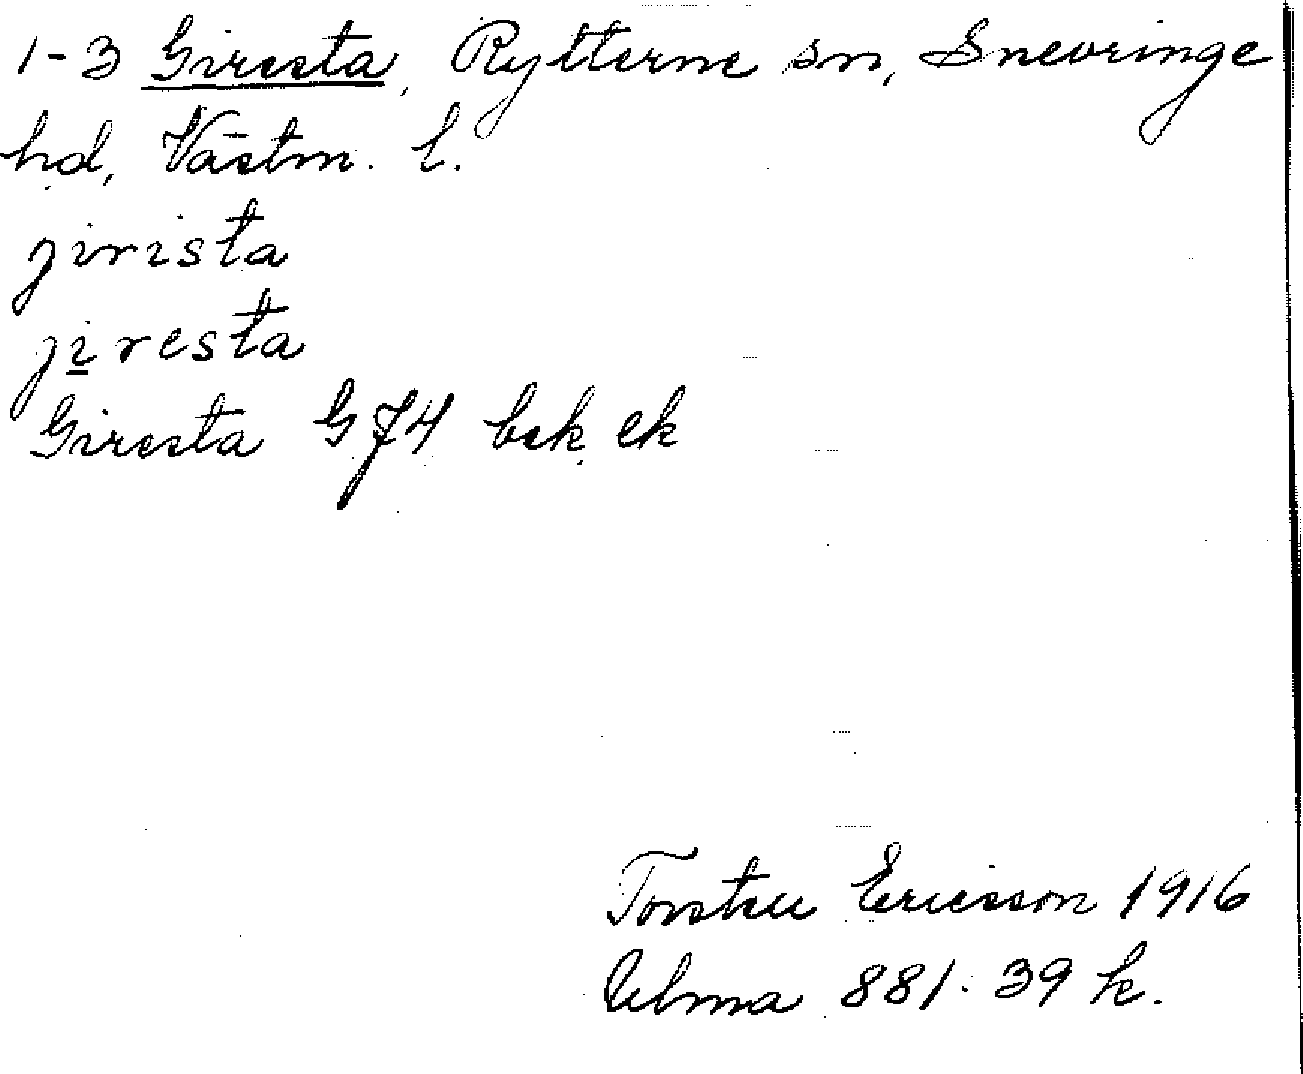 1-3 Giresta, Rytterne sn, Snevringe
hd, Västm. l.
jirista
jiresta
Giresta G J4 bsk ek
Torsten Ericsson 1916
Ulma 881:39 k.